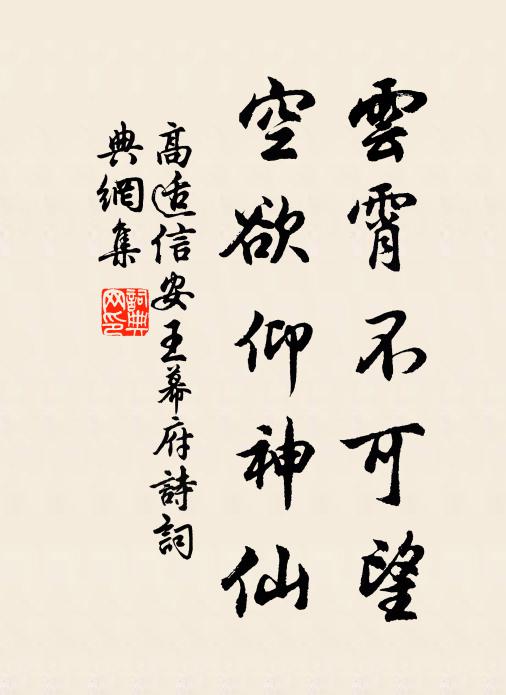 雲霄不可望
空欲仰神仙
高適信安王幕府詩詞
典網集
詞典網印